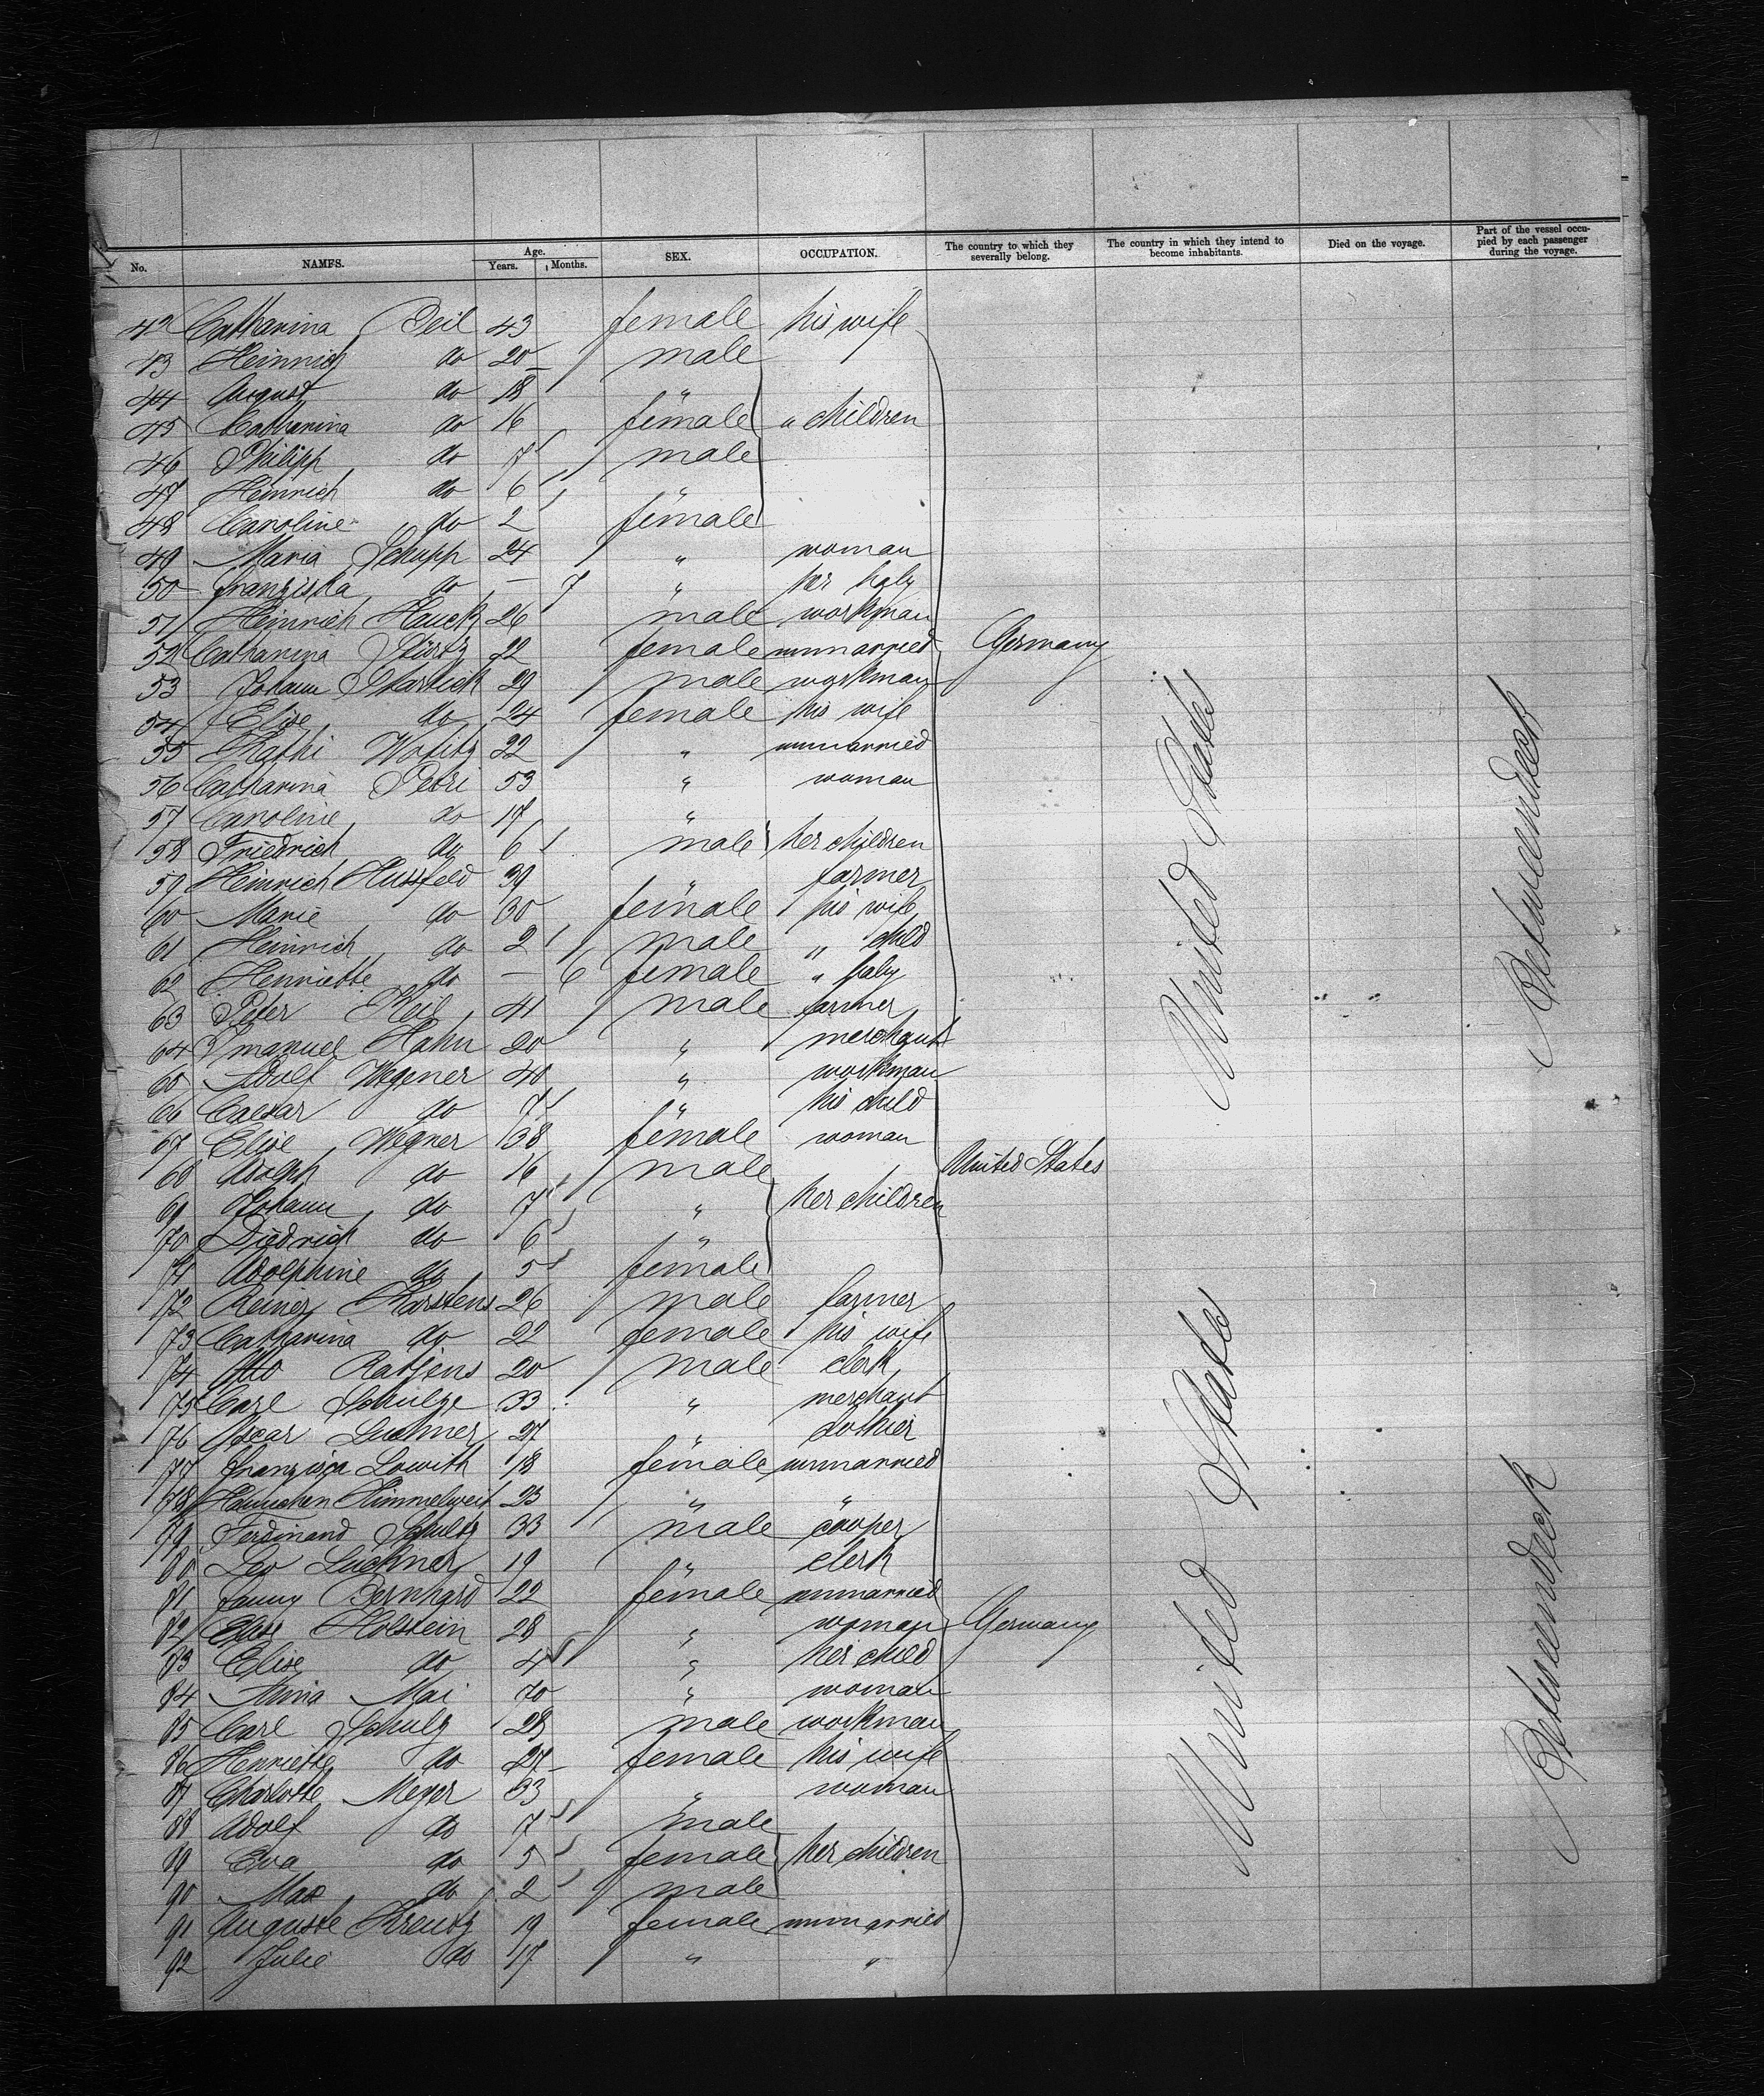 No. NAMES. Age. Years. Months. SEX. OCCUPATION. The country to which they severally belong. The country in which they intend to become inhabitants. Died on the voyage. Part of the vessel occupied by each passenger during the voyage.
42 Catharina Beil 43 female his wife
43 Heinrich do 20 male
44 August do 18 "
45 Catharina do 16 female " children
46 Philipp do 7 male
47 Heinrich do 6 "
48 Caroline do 2 female
49 Maria Schupp 24 " woman
50 Franziska do — 7 " her baby
51 Heinrich Hauck 26 male workman
52 Catharina 22 female unmarried Germany
53 Johann 29 male workman
54 Elise do 24 female his wife
55 Kathi 22 " unmarried
56 Catharina Petri 53 " woman
57 Caroline do 17 "
58 Friedrich do 6 male her children
59 Heinrich Hussfeld 39 " farmer
60 Marie do 30 female his wife
61 Heinrich do 2 male " child
62 Henriette do — 6 female " baby
63 Peter Keil 41 male farmer
64 Emanuel Hahn 20 " merchant
65 Adolf Wegener 40 " workman
66 Caesar do 7 " his child
67 Elise Wegner 38 female woman
68 Adolph do 16 male United States
69 Johann do 7 " her children
70 Diedrich do 6 "
71 Adolphine do 5 female
72 Reiner Karstens 26 male farmer
73 Catharina do 22 female his wife
74 Otto Ratjens 20 male clerk
75 Carl Schulze 33 " merchant
76 Oscar Luchner 27 " clothier
77 Franzisca Lowith 18 female unmarried
78 Hannchen Himmelweit 23 " "
79 Ferdinand Schultz 33 male cooper
80 Leo Luchner 19 " clerk
81 Fanny Bernhard 22 female unmarried
82 Elise Holstein 28 " woman Germany
83 Elise do 4 " her child
84 Anna Mai 70 " woman
85 Carl Schulz 28 male workman
86 Henriette do 27 female his wife
87 Charlotte Meyer 33 " woman
88 Adolf do 7 male
89 Eva do 5 female her children
90 Max do 2 male
91 Auguste Kreutz 19 female unmarried
92 Julie do 17 " "
United States
Betweendeck
United States
Betweendeck